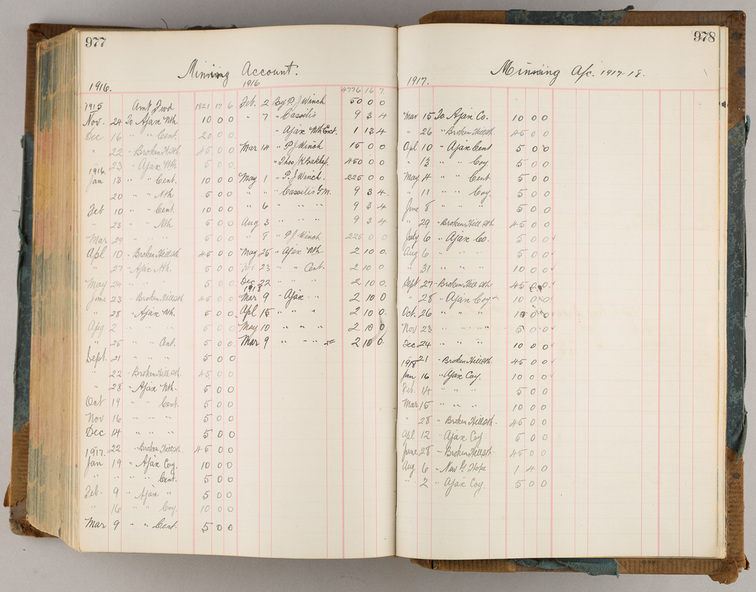 977
Minning Account.
1916. 1916
1915 Amt Fwd 1921 17 6
Nov. 24 To Ajax Nth 10 0 0
Dec 16 " " Cent. 20 0 0
" 22 " Broken Hill Sth 15 0 0
" 23 " Ajax Nth 5 0 0
1916
Jan 13 " " Cent. 10 0 0
20 " " Nth 5 0 0
Feb 10 " " Cent. 10 0 0
" 23 " " Nth 5 0 0
Mar 5 0 0
Apl 10 " Broken Hill Sth 45 0 0
" 27 " Ajax Nth. 5 0 0
May 5 0 0
June 23 " Broken Hill Sth 45 0 0
" 28 " Ajax Nth 5 0 0
Aug 2 " " " 5 0 0
" 25 " " Cent. 5 0 0
Sept. 21 " " " 5 0 0
22 " Broken Hill Sth 45 0 0
" 28 " Ajax Nth. 5 0 0
Oct 19 " " Cent. 5 0 0
Nov 16 " " " 5 0 0
Dec 14 " " " 5 0 0
1917. 22 " Broken Hill Sth 45 0 0
Jan 19 " Ajax Coy. 10 0 0
" " " " Cent. 5 0 0
Feb. 9 " Ajax " 5 0 0
" 16 " " Coy. 10 0 0
Mar 9 " " Cent. 5 0 0
4776 16 7
Feb. 2 By P. J. Winch 50 0 0
" 7 " Cassilis 9 3 4
" Ajax Nth Cent. 1 13 4
Mar 14 " P J Winch 15 0 0
450 0 0
May 1 " P. J. Winch. 225 0 0
" " " Cassilis G.M. 9 3 4
" 6 " " 9 3 4
Aug 3 " " 9 3 4
" 8 " P J Winch 225 0 0
May 25 " Ajax Nth 2 10 0
23 " " Cent. 2 10 0
Dec 22 " " " 2 10 0
1918
Mar 9 " Ajax " 2 10 0
Apl 15 " " " 2 10 0
May 10 " " " 2 10 0
Mar 9 " " " 2 10 0
978
Minning A/c. 1917-18.
1917.
Mar 15 To Ajax Co. 10 0 0
" 26 " Broken Hill Sth 45 0 0
Apl 10 " Ajax Cent 5 0 0
" 13 " " Coy 5 0 0
May 4 " " Cent. 5 0 0
" 11 " " Coy. 5 0 0
June 8 " " " 5 0 0
" 29 " Broken Hill Sth 45 0 0
July 6 " Ajax Co. 5 0 0
Aug 6 " " " 5 0 0
" 31 " " " 10 0 0
Sept 27 " Broken Hill Sth 45 0 0
" 28 " Ajax Coy 10 0 0
Oct. 26 " " " 10 0 0
Nov 23 " " " 5 0 0
Dec 24 " " " 10 0 0
1918 21 " Broken Hill Sth 45 0 0
Jan 16 " Ajax Coy. 10 0 0
Feb. 14 " " " 5 0 0
Mar 15 " " " 10 0 0
" 28 " Broken Hill Sth 45 0 0
Apl 12 " Ajax Coy 5 0 0
June 28 " Broken Hill Sth. 45 0 0
Aug 6 " New Hope 1 4 0
" 2 " Ajax Coy. 5 0 0